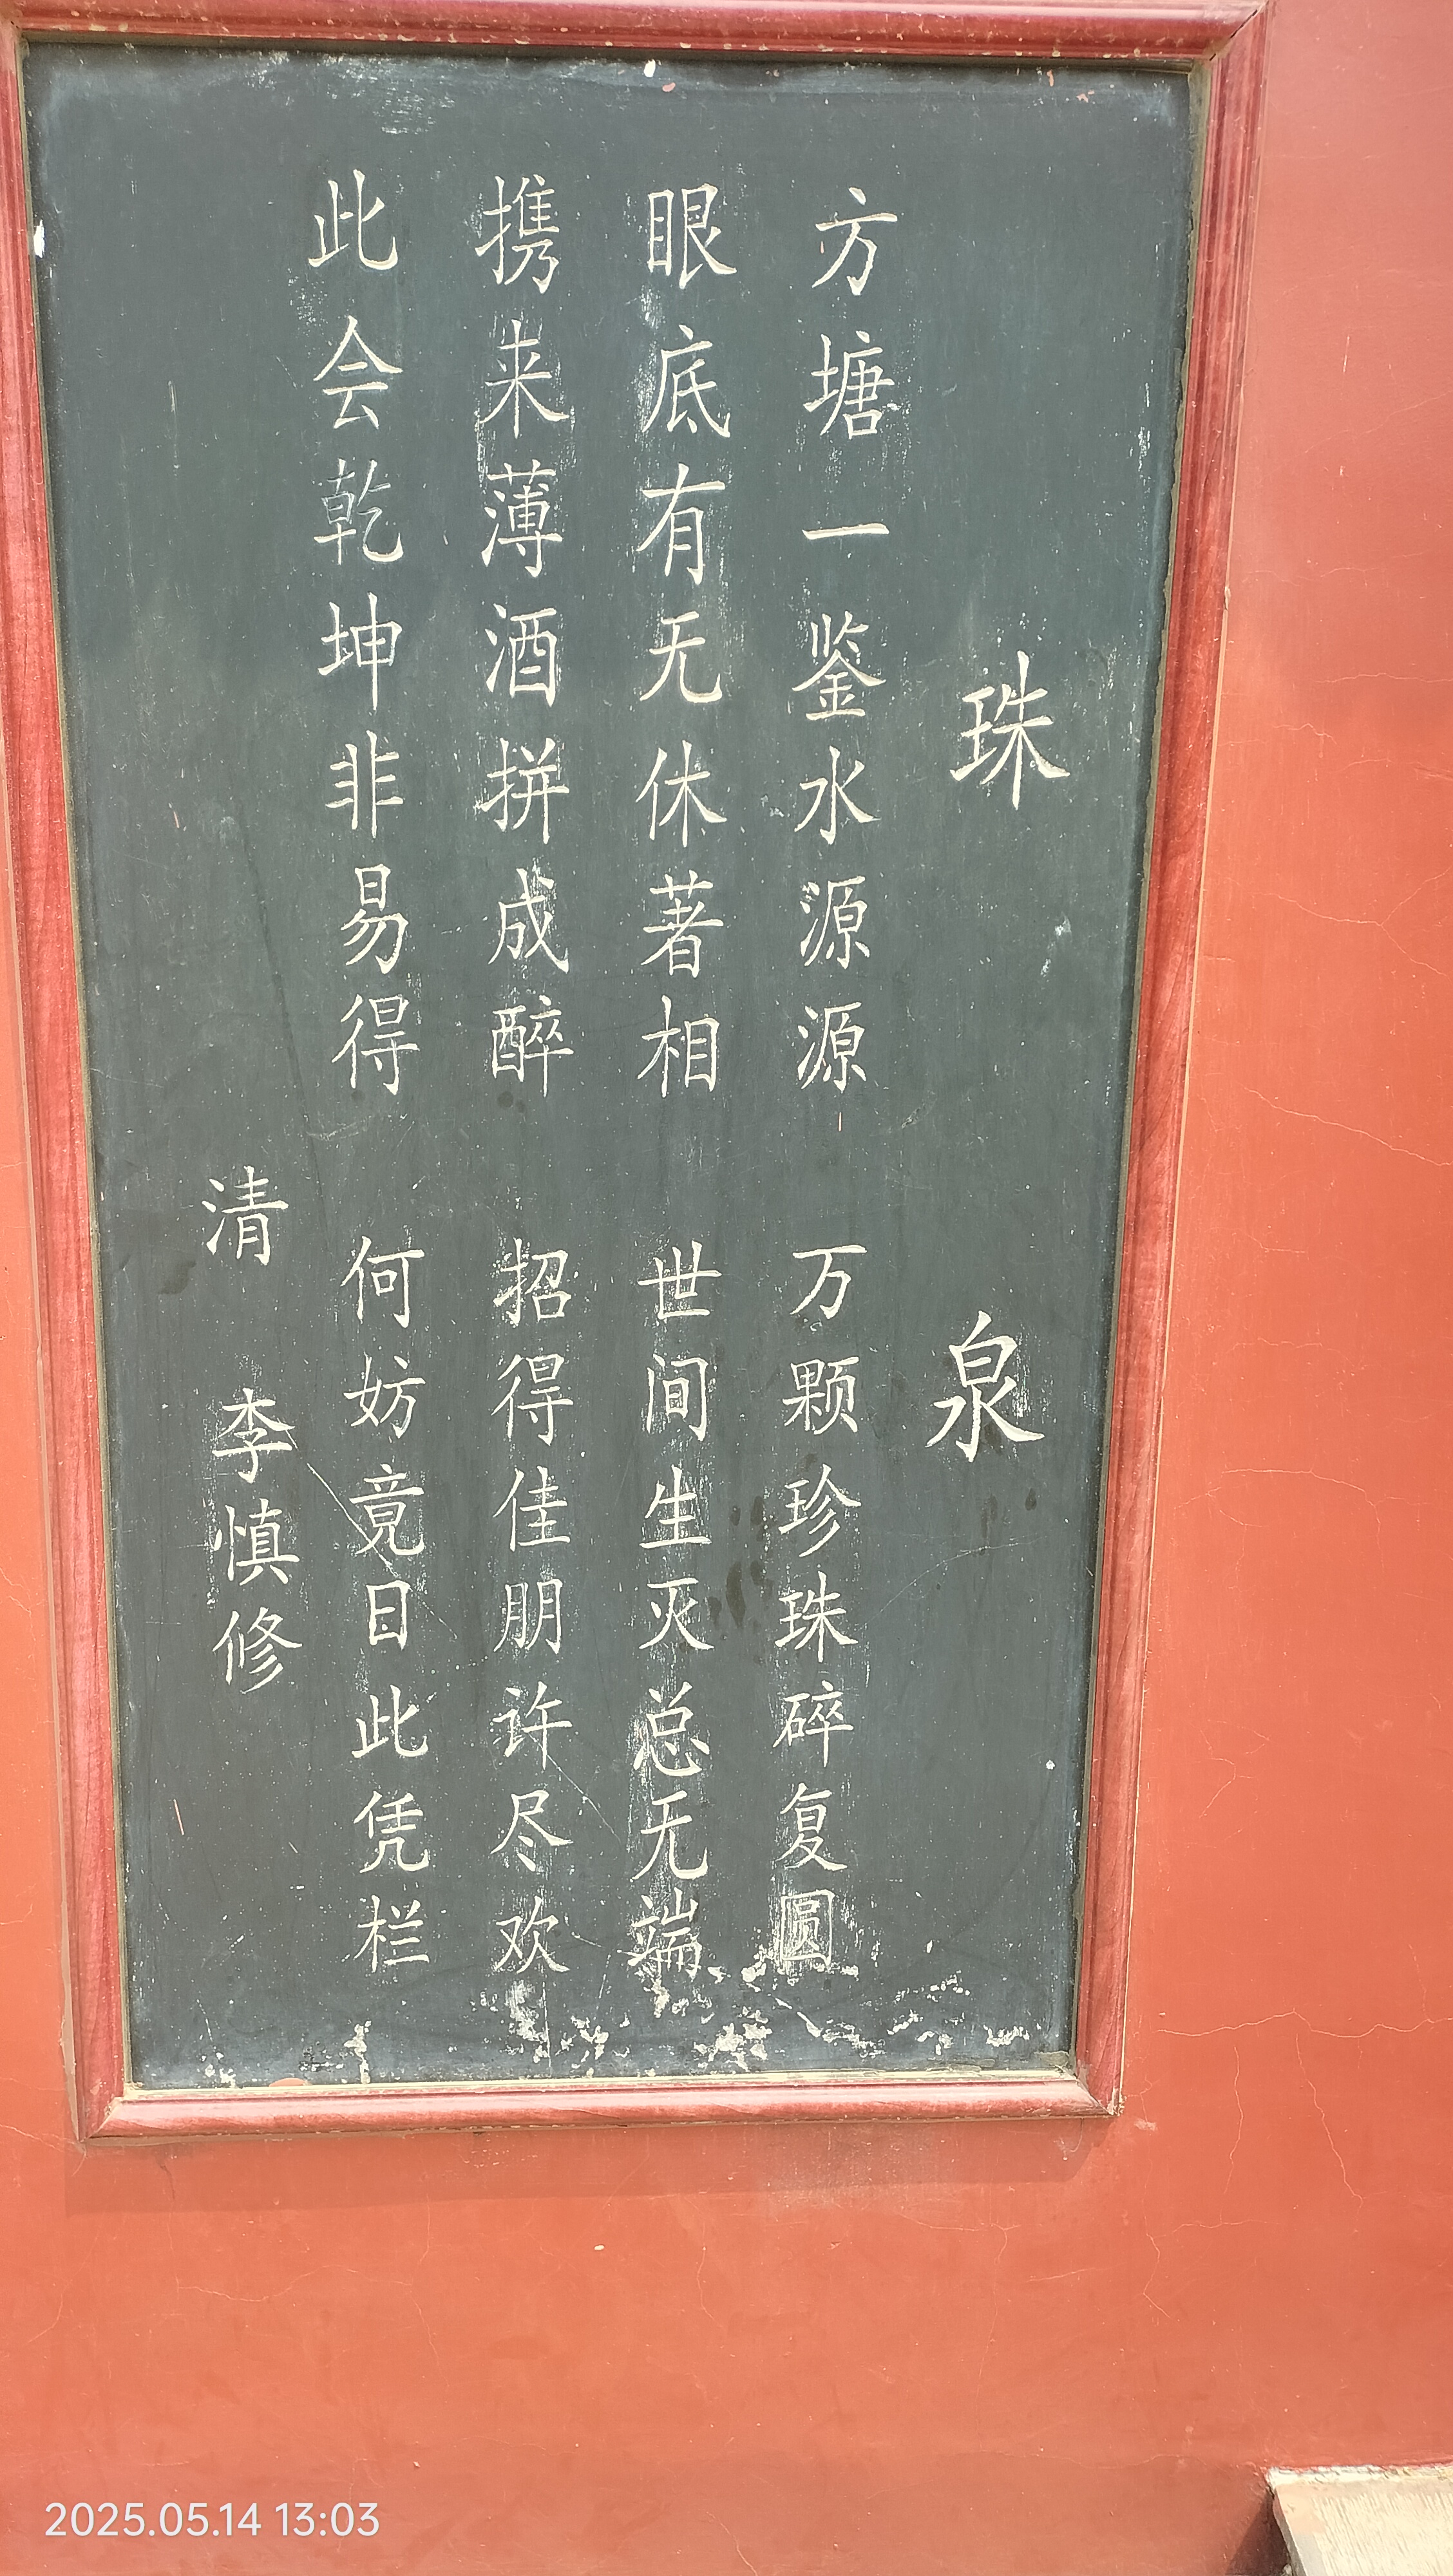 珠 泉
方塘一鉴水源源 万颗珍珠碎复圆
眼底有无休著相 世间生灭总无端
携来薄酒拼成醉 招得佳朋许尽欢
此会乾坤非易得 何妨竟日此凭栏
清 李慎修
2025.05.14 13:03